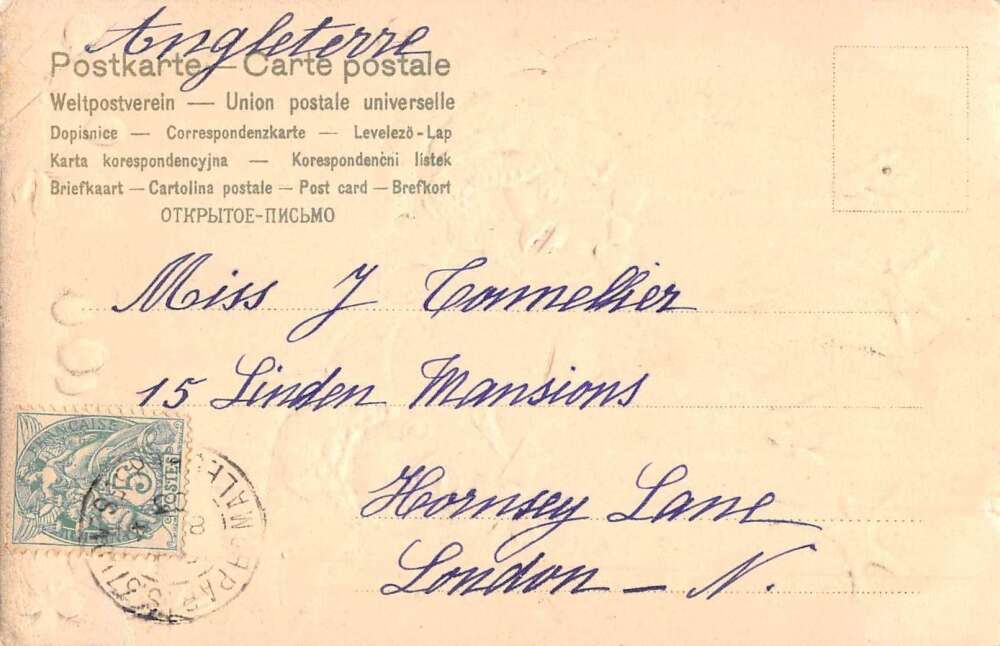 Angleterre
Postkarte — Carte postale
Weltpostverein — Union postale universelle
Dopisnice — Correspondenzkarte — Levelező-Lap
Karta korespondencyjna — Korespondenčni listek
Briefkaart — Cartolina postale — Post card — Brefkort
ОТКРЫТОЕ-ПИСЬМО
Miss J
15 Linden Mansions
Hornsey Lane
London - N.
POSTES
5
PARIS